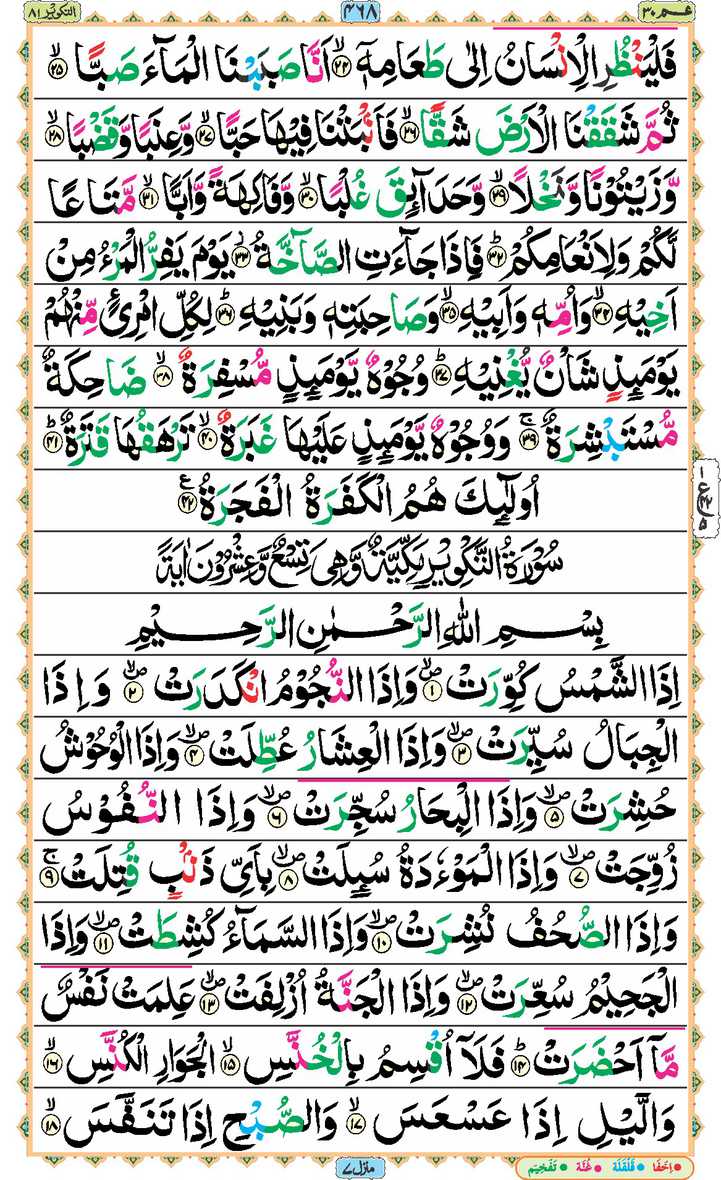 عـمّ ۳۰
۴۶۸
التکویر ۸۱
فَلْیَنْظُرِ الْاِنْسَانُ اِلٰی طَعَامِهٖۤ ۙ۲۴ اَنَّا صَبَبْنَا الْمَآءَ صَبًّا ۙ۲۵
ثُمَّ شَقَقْنَا الْاَرْضَ شَقًّا ۙ۲۶ فَاَنْۢبَتْنَا فِیْهَا حَبًّا ۙ۲۷ وَّعِنَبًا وَّقَضْبًا ۙ۲۸
وَّزَیْتُوْنًا وَّنَخْلًا ۙ۲۹ وَّحَدَآئِقَ غُلْبًا ۙ۳۰ وَّفَاكِهَةً وَّاَبًّا ۙ۳۱ مَّتَاعًا
لَّكُمْ وَلِاَنْعَامِكُمْ ؕ۳۲ فَاِذَا جَآءَتِ الصَّآخَّةُ ؗ۳۳ یَوْمَ یَفِرُّ الْمَرْءُ مِنْ
اَخِیْهِ ۙ۳۴ وَاُمِّهٖ وَاَبِیْهِ ۙ۳۵ وَصَاحِبَتِهٖ وَبَنِیْهِ ؕ۳۶ لِكُلِّ امْرِئٍ مِّنْهُمْ
یَوْمَئِذٍ شَاْنٌ یُّغْنِیْهِ ؕ۳۷ وُجُوْهٌ یَّوْمَئِذٍ مُّسْفِرَةٌ ۙ۳۸ ضَاحِكَةٌ
مُّسْتَبْشِرَةٌ ۚ۳۹ وَوُجُوْهٌ یَّوْمَئِذٍ عَلَیْهَا غَبَرَةٌ ۙ۴۰ تَرْهَقُهَا قَتَرَةٌ ؕ۴۱
اُولٰٓئِكَ هُمُ الْكَفَرَةُ الْفَجَرَةُ ۴۲ ع
سُوْرَةُ التَّكْوِیْرِ مَكِّیَّةٌ وَّهِیَ تِسْعٌ وَّعِشْرُوْنَ اٰیَةً
بِسْمِ اللهِ الرَّحْمٰنِ الرَّحِیْمِ
اِذَا الشَّمْسُ كُوِّرَتْ ۪ۙ۱ وَاِذَا النُّجُوْمُ انْكَدَرَتْ ۪ۙ۲ وَاِذَا
الْجِبَالُ سُیِّرَتْ ۪ۙ۳ وَاِذَا الْعِشَارُ عُطِّلَتْ ۪ۙ۴ وَاِذَا الْوُحُوْشُ
حُشِرَتْ ۪ۙ۵ وَاِذَا الْبِحَارُ سُجِّرَتْ ۪ۙ۶ وَاِذَا النُّفُوْسُ
زُوِّجَتْ ۪ۙ۷ وَاِذَا الْمَوْءٗدَةُ سُئِلَتْ ۪ۙ۸ بِاَیِّ ذَنْۢبٍ قُتِلَتْ ۚ۹
وَاِذَا الصُّحُفُ نُشِرَتْ ۪ۙ۱۰ وَاِذَا السَّمَآءُ كُشِطَتْ ۪ۙ۱۱ وَاِذَا
الْجَحِیْمُ سُعِّرَتْ ۪ۙ۱۲ وَاِذَا الْجَنَّةُ اُزْلِفَتْ ۪ۙ۱۳ عَلِمَتْ نَفْسٌ
مَّاۤ اَحْضَرَتْ ؕ۱۴ فَلَاۤ اُقْسِمُ بِالْخُنَّسِ ۙ۱۵ الْجَوَارِ الْكُنَّسِ ۙ۱۶
وَالَّیْلِ اِذَا عَسْعَسَ ۙ۱۷ وَالصُّبْحِ اِذَا تَنَفَّسَ ۙ۱۸
منزل ۷
اِخفَا قَلقَلَه غُنَّه تَفخِیم